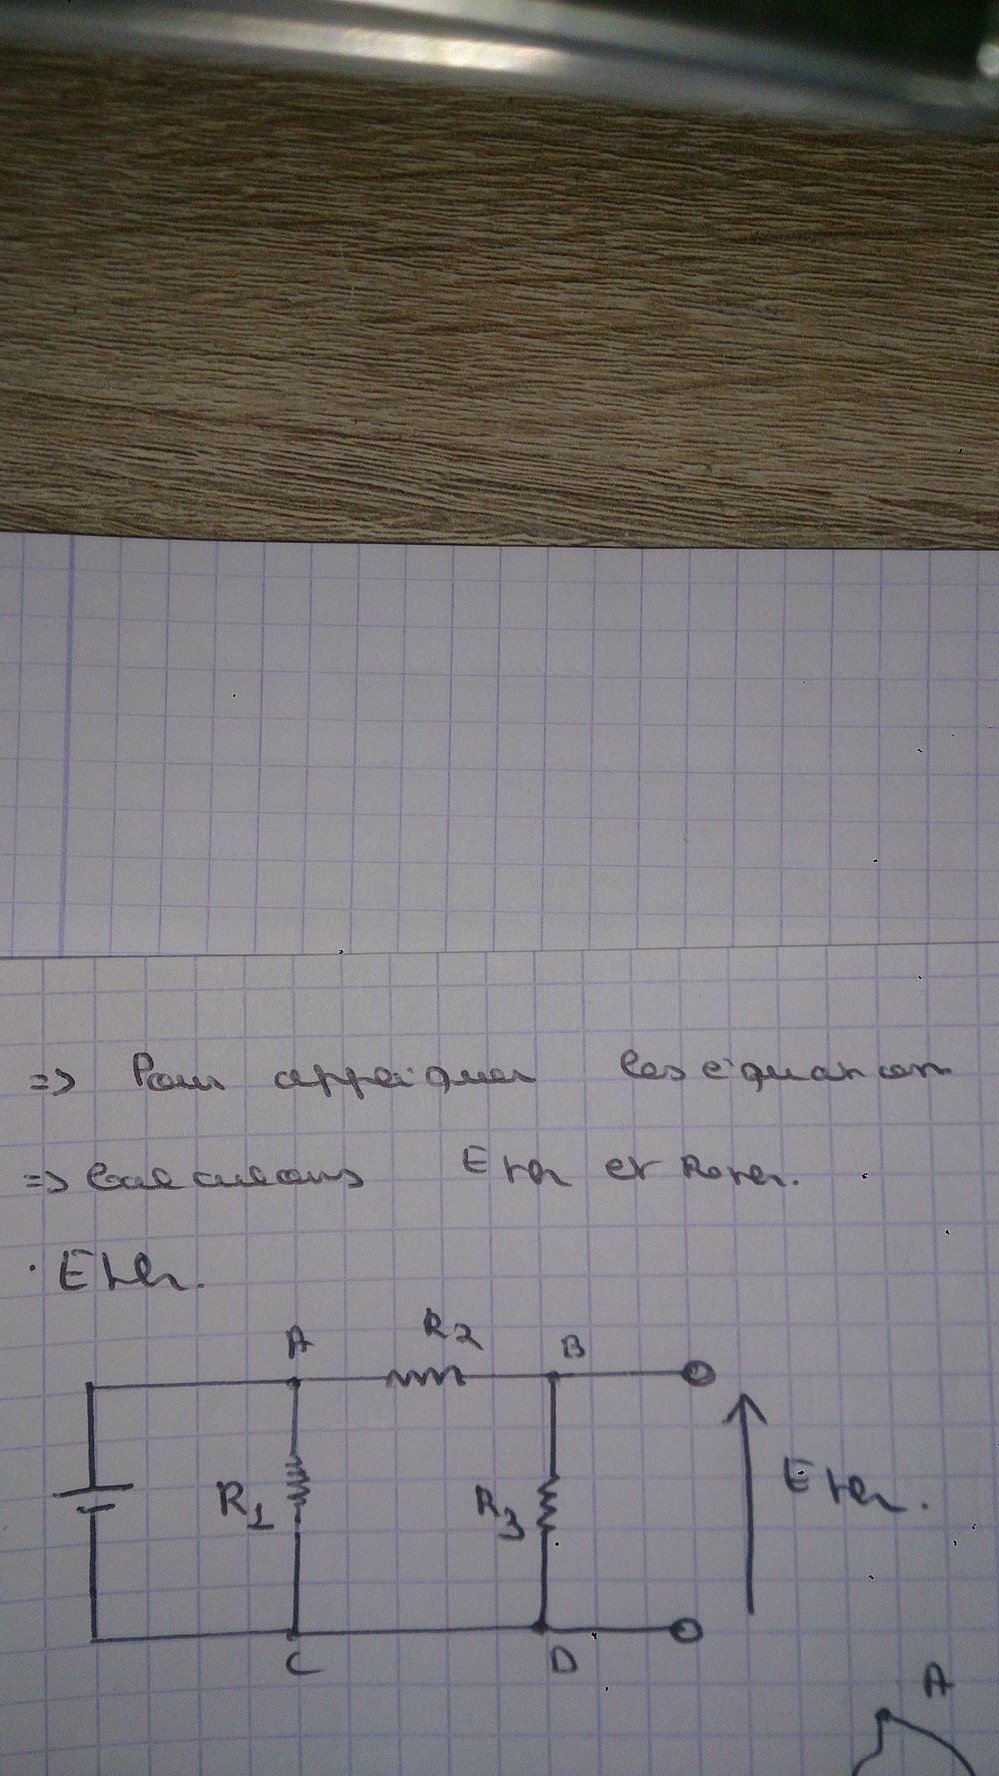 => Pour appliquer les équation
=> Calculons Eth et Rth.
· Eth.
A R2 B
R1 R3 Eth.
C D
A